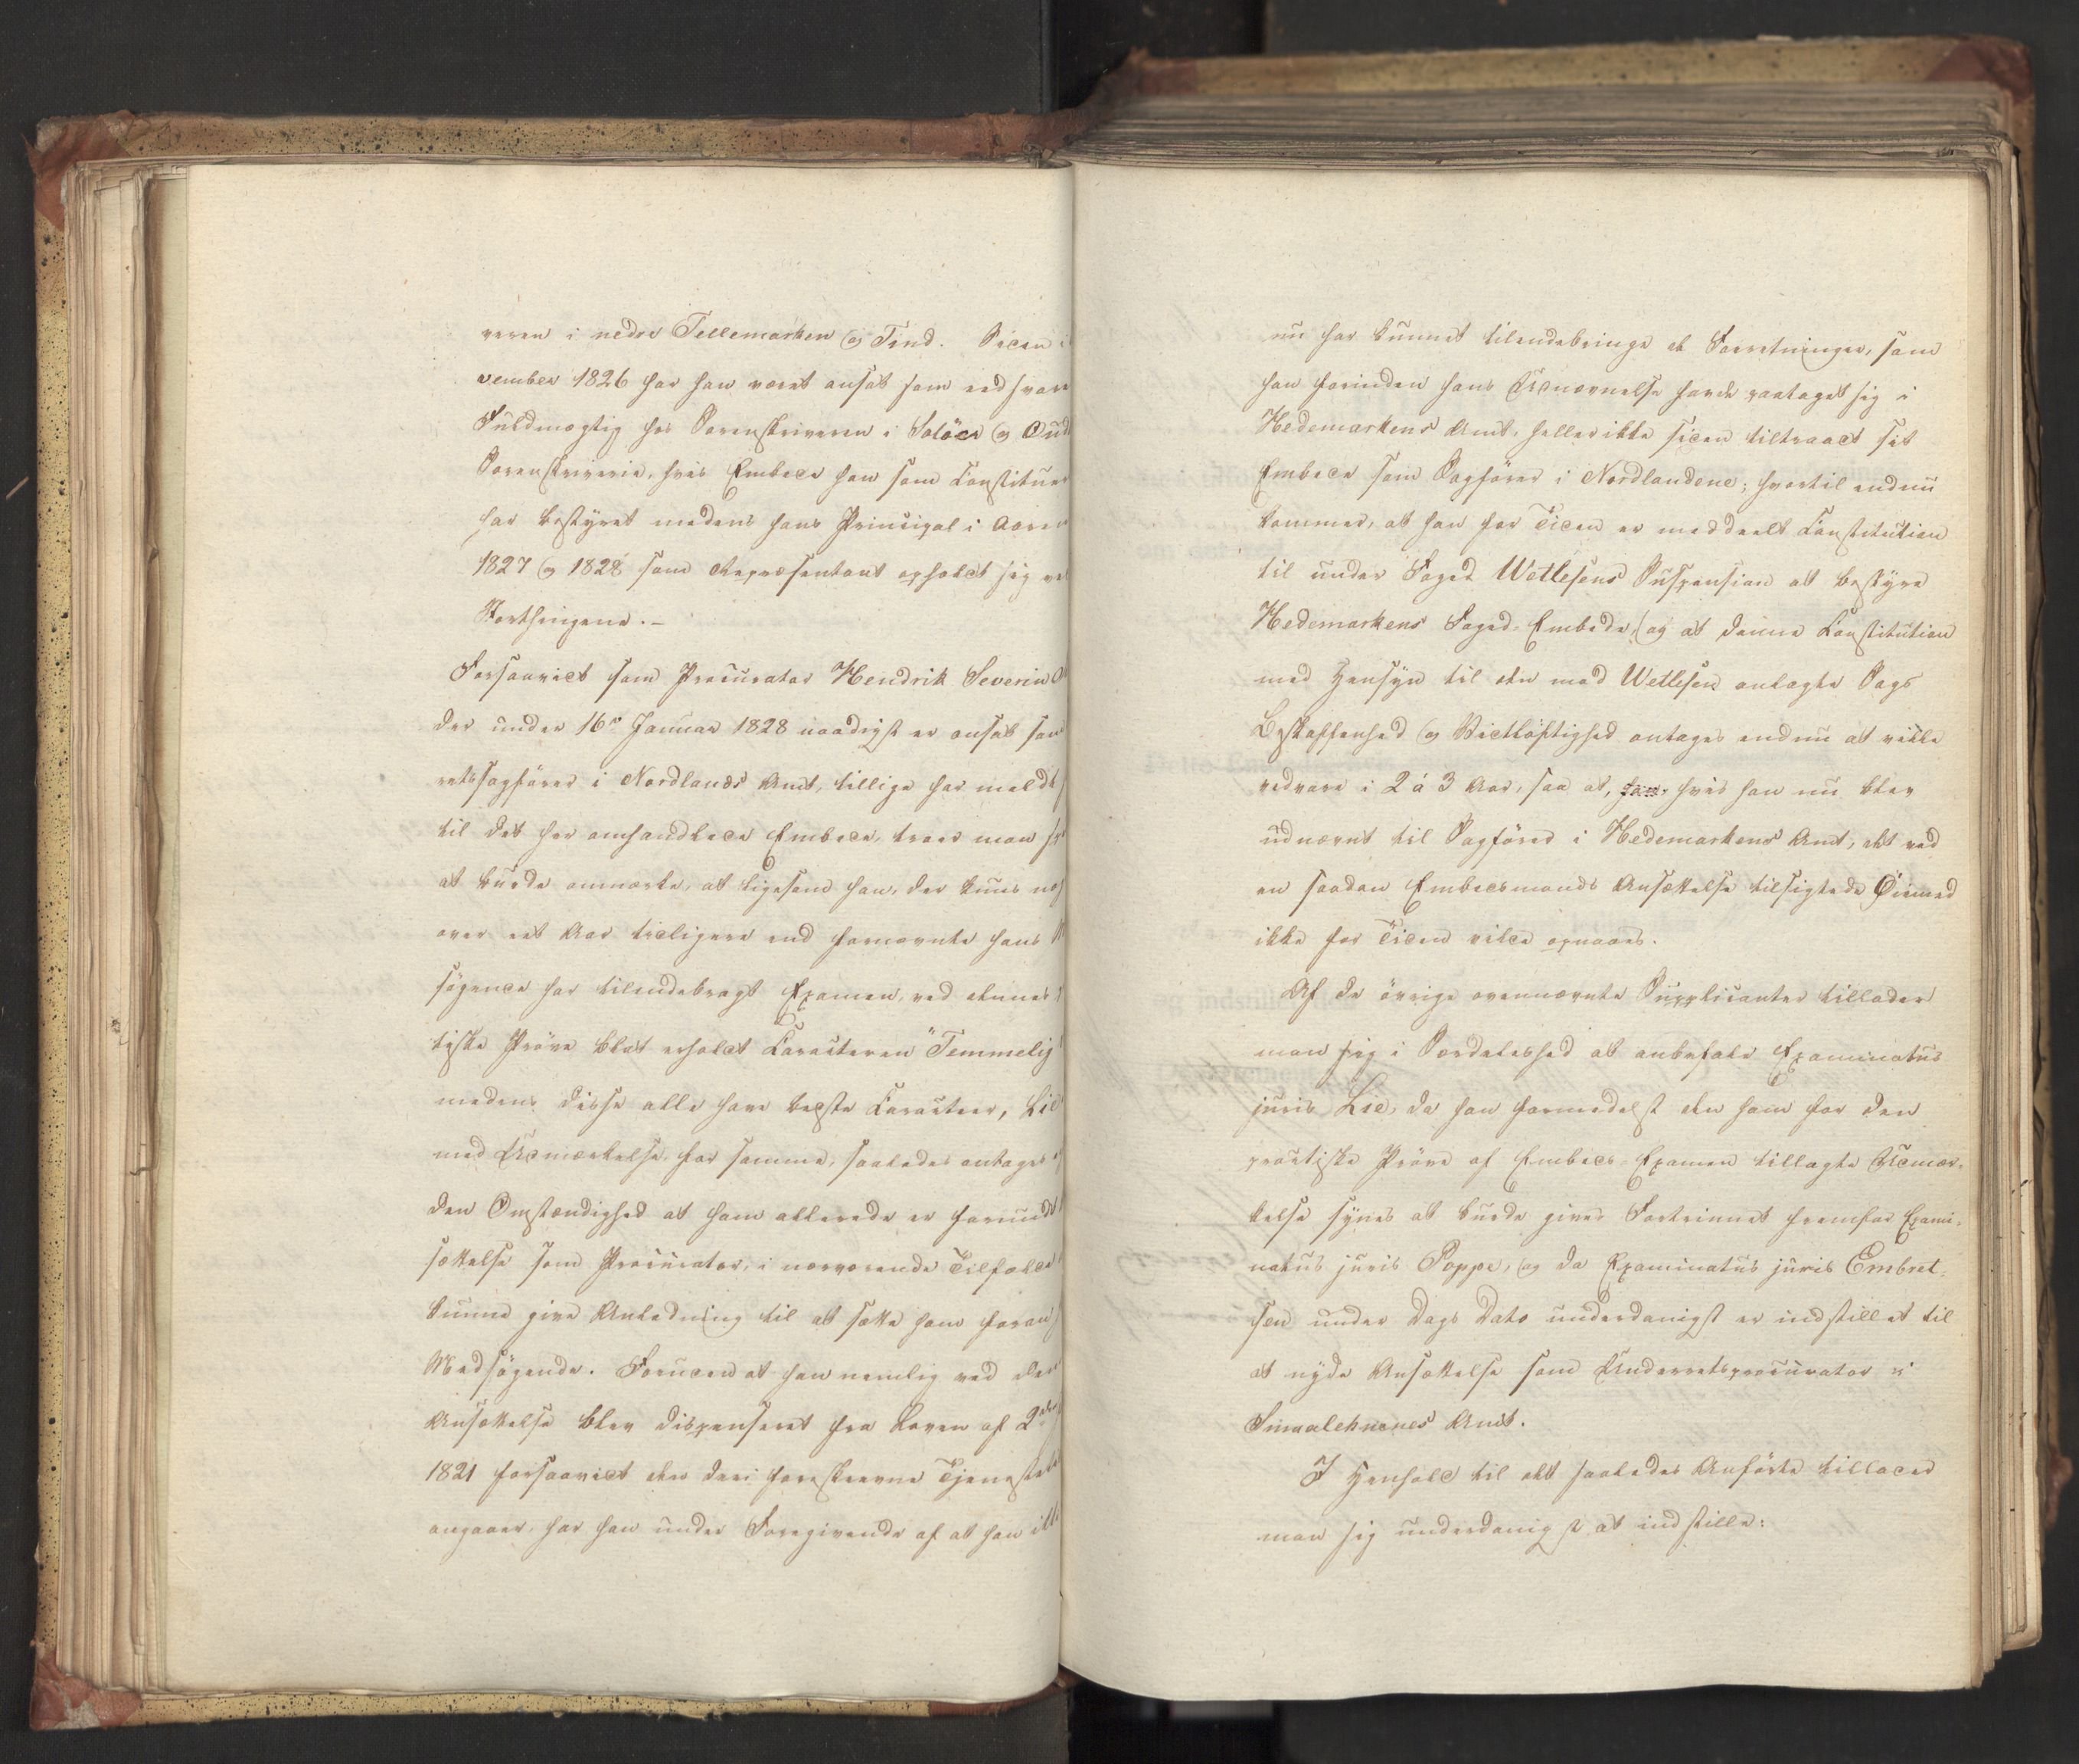 veren i nedre Tellemarken og Tind. Siden i
vember 1826 har han været ansat som eedsvore
Fuldmægtig hos Sorenskriveren i Solöer og Oud
Sorenskriverie, hvis Embede han som Constitue
har bestyret medens hans Principal i Aaren
1827 og 1828 som Repræsentant opholdt sig ve
Storthingene.-
Forsaavidt som Procurator Hendrik Severin
der under 16de Januar 1828 naadigst er ansat som
retssagförer i Nordlands Amt, tillige har meldt
til det her omhandlede Embede, troer man
at burde anmærke, at ligesom han, der kuns no
over eet Aar tidligere end fornævnte hans
sögende har tilendebragt Examen, ved dennes
tiske Pröve blot erholdt Caracteren "Temmelig
medens disse alle have bedste Caracteer, Lie
med Udmærkelse for samme, saaledes antages
den Omstændighed at ham allerede er forundt
sættelse som Procurator, i nærværende Tilfælde
kunne give Anledning til at sætte ham foran
Medsögende. Foruden at han nemlig ved den
Ansættelse blev dispenseret fra Loven af 2
1821 forsaavidt den deri foreskrevne Tjeneste
angaaer, har han under Foregivende af at han
nu har kunnet tilendebringe de Forretninger, som
han forinden hans Udnævnelse havde paataget sig i
Hedemarkens Amt, heller ikke siden tiltraadt sit
Embede som Sagförer i Nordlandene; hvortil endnu
kommer, at han for Tiden er meddeelt Constitution
til under Foged Wetlesens Suspension at bestyre
Hedemarkens Foged-Embede, og at denne Constitution
med Hensyn til den mod Wetlesen anlagte Sags
Beskaffenhed og Vidtlöftighed antages endnu at ville
vedvare i 2 á 3 Aar, saa at, hvis han nu blev
udnævnt til Sagförer i Hedemarkens Amt, det ved
en saadan Embedsmands Ansættelse tilsigtede Öiemed
ikke for Tiden vilde opnaaes.
Af de övrige ovennævnte Supplicanter tillader
man sig i Særdeleshed at anbefale Examinatus
juris Lie, da han formedelst den ham for den
practiske Pröve af Embeds-Examen tillagte Udmær-
kelse synes at burde gives Fortrinnet fremfor Exami-
natus juris Poppe, og da Examinatus juris Embret-
sen under Dags Dato underdanigst er indstillet til
at nyde Ansættelse som Underretsprocurator i
Smaalehnenes Amt.
I Henhold til det saaledes Anförte tillader
man sig underdanigst at indstille: